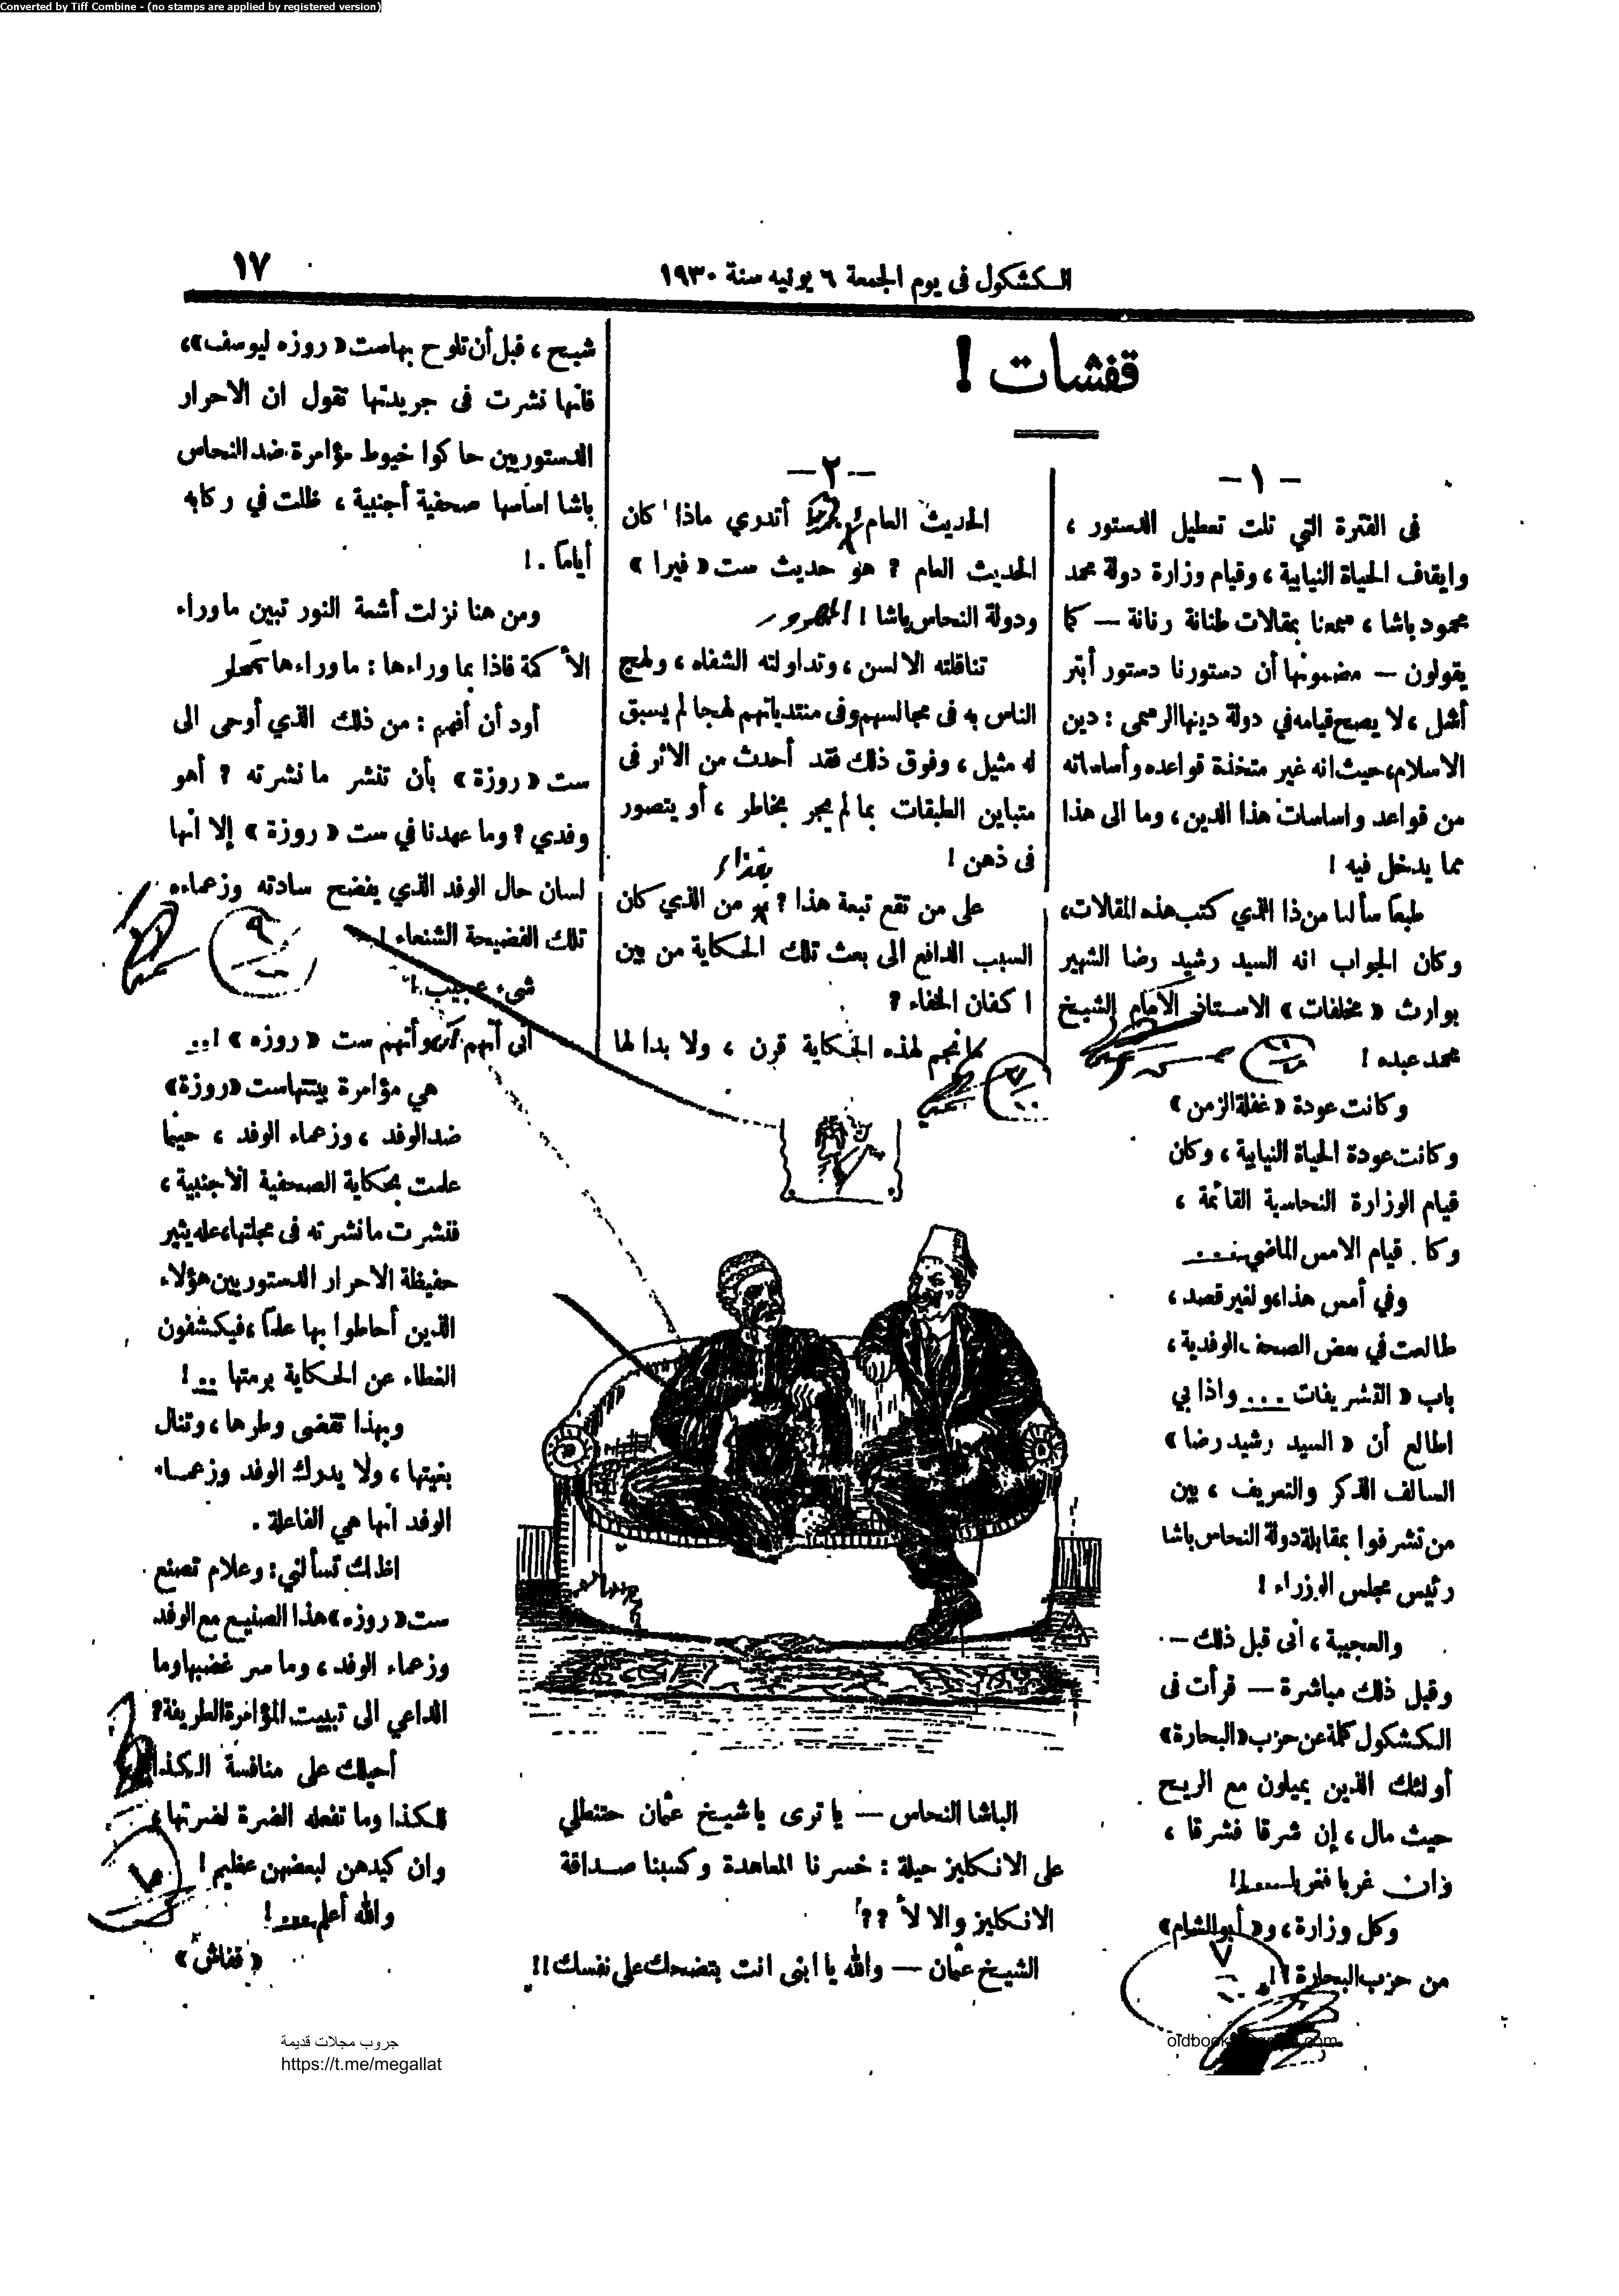 Converted by Tiff Combine - (no stamps are applied by registered version)
١٧
الكشكول فى يوم الجمعة ٦ يونيه سنة ١٩٣٠
قفشات !
— ١ —
فى الفترة التي تلت تعطيل الدستور ،
وايقاف الحياة النيابية ، وقيام وزارة دولة محمد
محمود باشا ، سمعنا بمقالات طنانة رنانة — كما
يقولون — مضمونها أن دستورنا دستور أبتر
أشل ، لا يصح قيامه في دولة دينها الرسمى : دين
الاسلام ، حيث انه غير متخذة قواعده وأساساته
من قواعد واساسات هذا الدين ، وما الى هذا
مما يدخل فيه !
طبعا سألنا من ذا الذي كتب هذه المقالات ،
وكان الجواب انه السيد رشيد رضا الشهير
بوارث « مخلفات » الاستاذ الامام الشيخ
محمد عبده !
وكانت عودة « غفلة الزمن »
وكانت عودة الحياة النيابية ، وكان
قيام الوزارة النحاسية القائمة ،
وكا. قيام الامس الماضي ....
وفي أمس هذا ، ولغير قصد ،
طالعت في بعض الصحف الوفدية ،
باب « التشريفات ... واذا بي
اطالع أن « السيد رشيد رضا »
السالف الذكر والتعريف ، بين
من تشرفوا بمقابلة دولة النحاس باشا
رئيس مجلس الوزراء !
والعجيبة ، أنى قبل ذلك —
وقبل ذلك مباشرة — قرأت فى
الكشكول كلمة عن حزب « البحارة »
أولئك الذين يميلون مع الريح
حيث مال ، إن شرقا فشرقا ،
وإن غربا فغربا ....!
وكل وزارة ، و« أبو الشام »
من حزب البحارة !!
— ٢ —
الحديث العام أتدري ماذا كان
الحديث العام ؟ هو حديث ست « فيرا »
ودولة النحاس باشا !
تناقلته الالسن ، وتداولته الشفاه ، ولهج
الناس به فى مجالسهم وفى منتدياتهم لهجا لم يسبق
له مثيل ، وفوق ذلك فقد أحدث من الاثر فى
متباين الطبقات بما لم يجر بخاطر ، أو يتصور
فى ذهن !
على من تقع تبعة هذا ؟ من الذي كان
السبب الدافع الى بعث تلك الحكاية من بين
اكفان الخفاء ؟
ما نجم لهذه الحكاية قرن ، ولا بدا لها
شبح ، قبل أن تلوح بها ست « روزه ليوسف »،
فانها نشرت فى جريدتها تقول ان الاحرار
الدستوريين حاكوا خيوط مؤامرة ضد النحاس
باشا اساسها صحفية أجنبية ، ظلت في ركابه
أياماً .!
ومن هنا نزلت أشعة النور تبين ما وراء
الأكمة فاذا بما وراءها : ما وراءها
أود أن أفهم : من ذلك الذي أوحى الى
ست « روزة » بأن تنشر ما نشرته ؟ أهو
وفدي ؟ وما عهدنا في ست « روزة » إلا انها
لسان حال الوفد الذي يفضح سادته وزعماءه
تلك الفضيحة الشنعاء !
شىء عجيب !
أنى أتهم وأتهم ست « روزه » !..
هي مؤامرة بيتتها ست « روزة »
ضد الوفد ، وزعماء الوفد ، حينما
علمت بحكاية الصحفية الأجنبية ،
فنشرت ما نشرته فى مجلتها ، عله يثير
حفيظة الاحرار الدستوريين هؤلاء
الذين أحاطوا بها علماً ، فيكشفون
الغطاء عن الحكاية برمتها ..!
وبهذا تقضى وطرها ، وتنال
بغيتها ، ولا يدرك الوفد وزعماء
الوفد انها هي الفاعلة .
اظنك تسألني : وعلام تصنع
ست « روزه » هذا الصنيع مع الوفد
وزعماء الوفد ، وما سر غضبها وما
الداعي الى تبييت المؤامرة الطريفة ؟
أحيلك على منافسة الكذا
للكذا وما تفعله الضرة لضرتها ،
وان كيدهن لبعضهن عظيم !
والله أعلم ...!
« قفاش »
الباشا النحاس — يا ترى يا شيخ عثمان حتنطلي
على الانكليز حيلة : خسرنا المعاهدة وكسبنا صداقة
الانكليز والا لأ ؟؟
الشيخ عثمان — والله يا ابنى انت بتضحك على نفسك !!
جروب مجلات قديمة
https://t.me/megallat